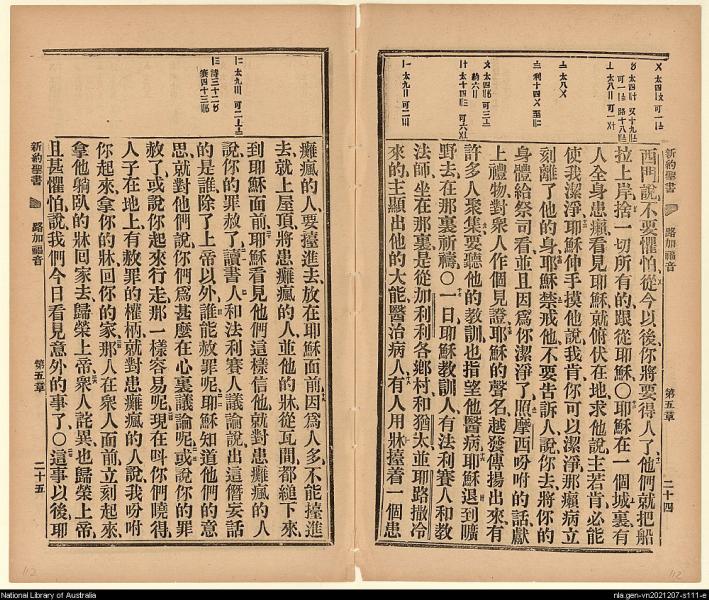 新約聖書 路加福音 第五章 二十四
西門說不要懼怕從今以後你將要得人了他們就把船
拉上岸捨一切所有的跟從耶穌〇耶穌在一個城裏有
人全身患癩看見耶穌就俯伏在地求他說主若肯必能
使我潔淨耶穌伸手摸他說我肯你可以潔淨那癩病立
刻離了他的身耶穌禁戒他不要告訴人說你去將你的
身體給祭司看並且因爲你潔淨了照摩西吩咐的話獻
上禮物對衆人作個見證耶穌的聲名越發傳揚出來有
許多人聚集要聽他的教訓也指望他醫病耶穌退到曠
野去在那裏祈禱〇一日耶穌教訓人有法利賽人和教
法師坐在那裏是從加利利各鄉村和猶太並耶路撒冷
來的主顯出他的大能醫治病人有人用牀擡着一個患
癱瘋的人要擡進去放在耶穌面前因爲人多不能擡進
去就上屋頂將患癱瘋的人並他的牀從瓦間都縋下來
到耶穌面前耶穌看見他們這樣信他就對患癱瘋的人
說你的罪赦了讀書人和法利賽人議論說出這僭妄話
的是誰除了上帝以外誰能赦罪呢耶穌知道他們的意
思就對他們說你們爲甚麼在心裏議論呢或說你的罪
赦了或說你起來行走那一樣容易呢現在呌你們曉得
人子在地上有赦罪的權柄就對患癱瘋的人說我吩咐
你起來拿你的牀回你的家那人在衆人面前立刻起來
拿他躺臥的牀回家去歸榮上帝衆人詫異也歸榮上帝
且甚懼怕說我們今日看見意外的事了〇這事以後耶
新約聖書 路加福音 第五章 二十五
National Library of Australia
nla.gen-vn2021207-s111-e